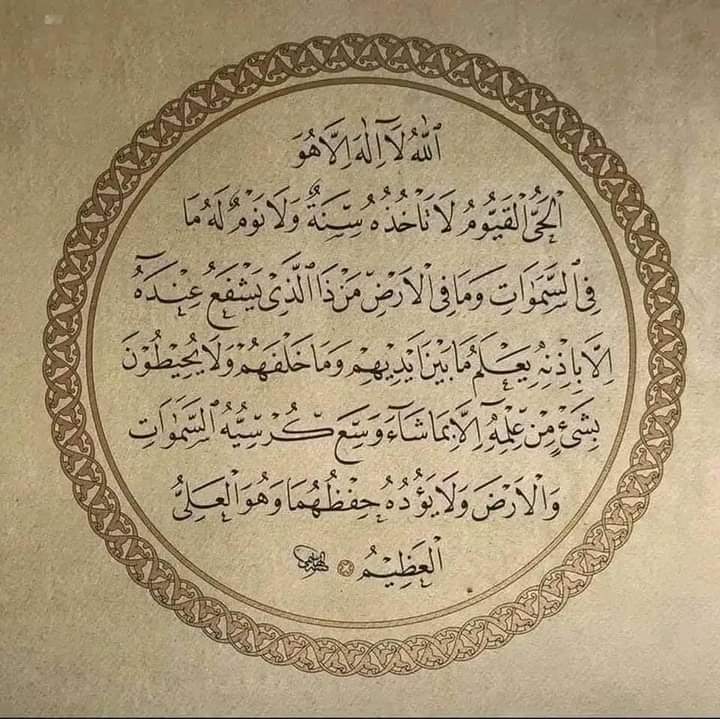 اَللّٰهُ لَآ اِلٰهَ اِلَّا هُوَ
اَلْحَيُّ الْقَيُّومُ لَا تَأْخُذُهُ سِنَةٌ وَلَا نَوْمٌ لَهُ مَا
فِي السَّمٰوَاتِ وَمَا فِي الْاَرْضِ مَنْ ذَا الَّذِي يَشْفَعُ عِنْدَهُٓ
اِلَّا بِاِذْنِهِ يَعْلَمُ مَا بَيْنَ اَيْدِيهِمْ وَمَا خَلْفَهُمْ وَلَا يُحِيطُونَ
بِشَيْءٍ مِنْ عِلْمِهِٓ اِلَّا بِمَا شَٓاءَ وَسِعَ كُرْسِيُّهُ السَّمٰوَاتِ
وَالْاَرْضَ وَلَا يَؤُدُهُ حِفْظُهُمَا وَهُوَ الْعَلِيُّ
الْعَظِيمُ